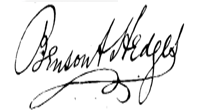 Benson & Hedges